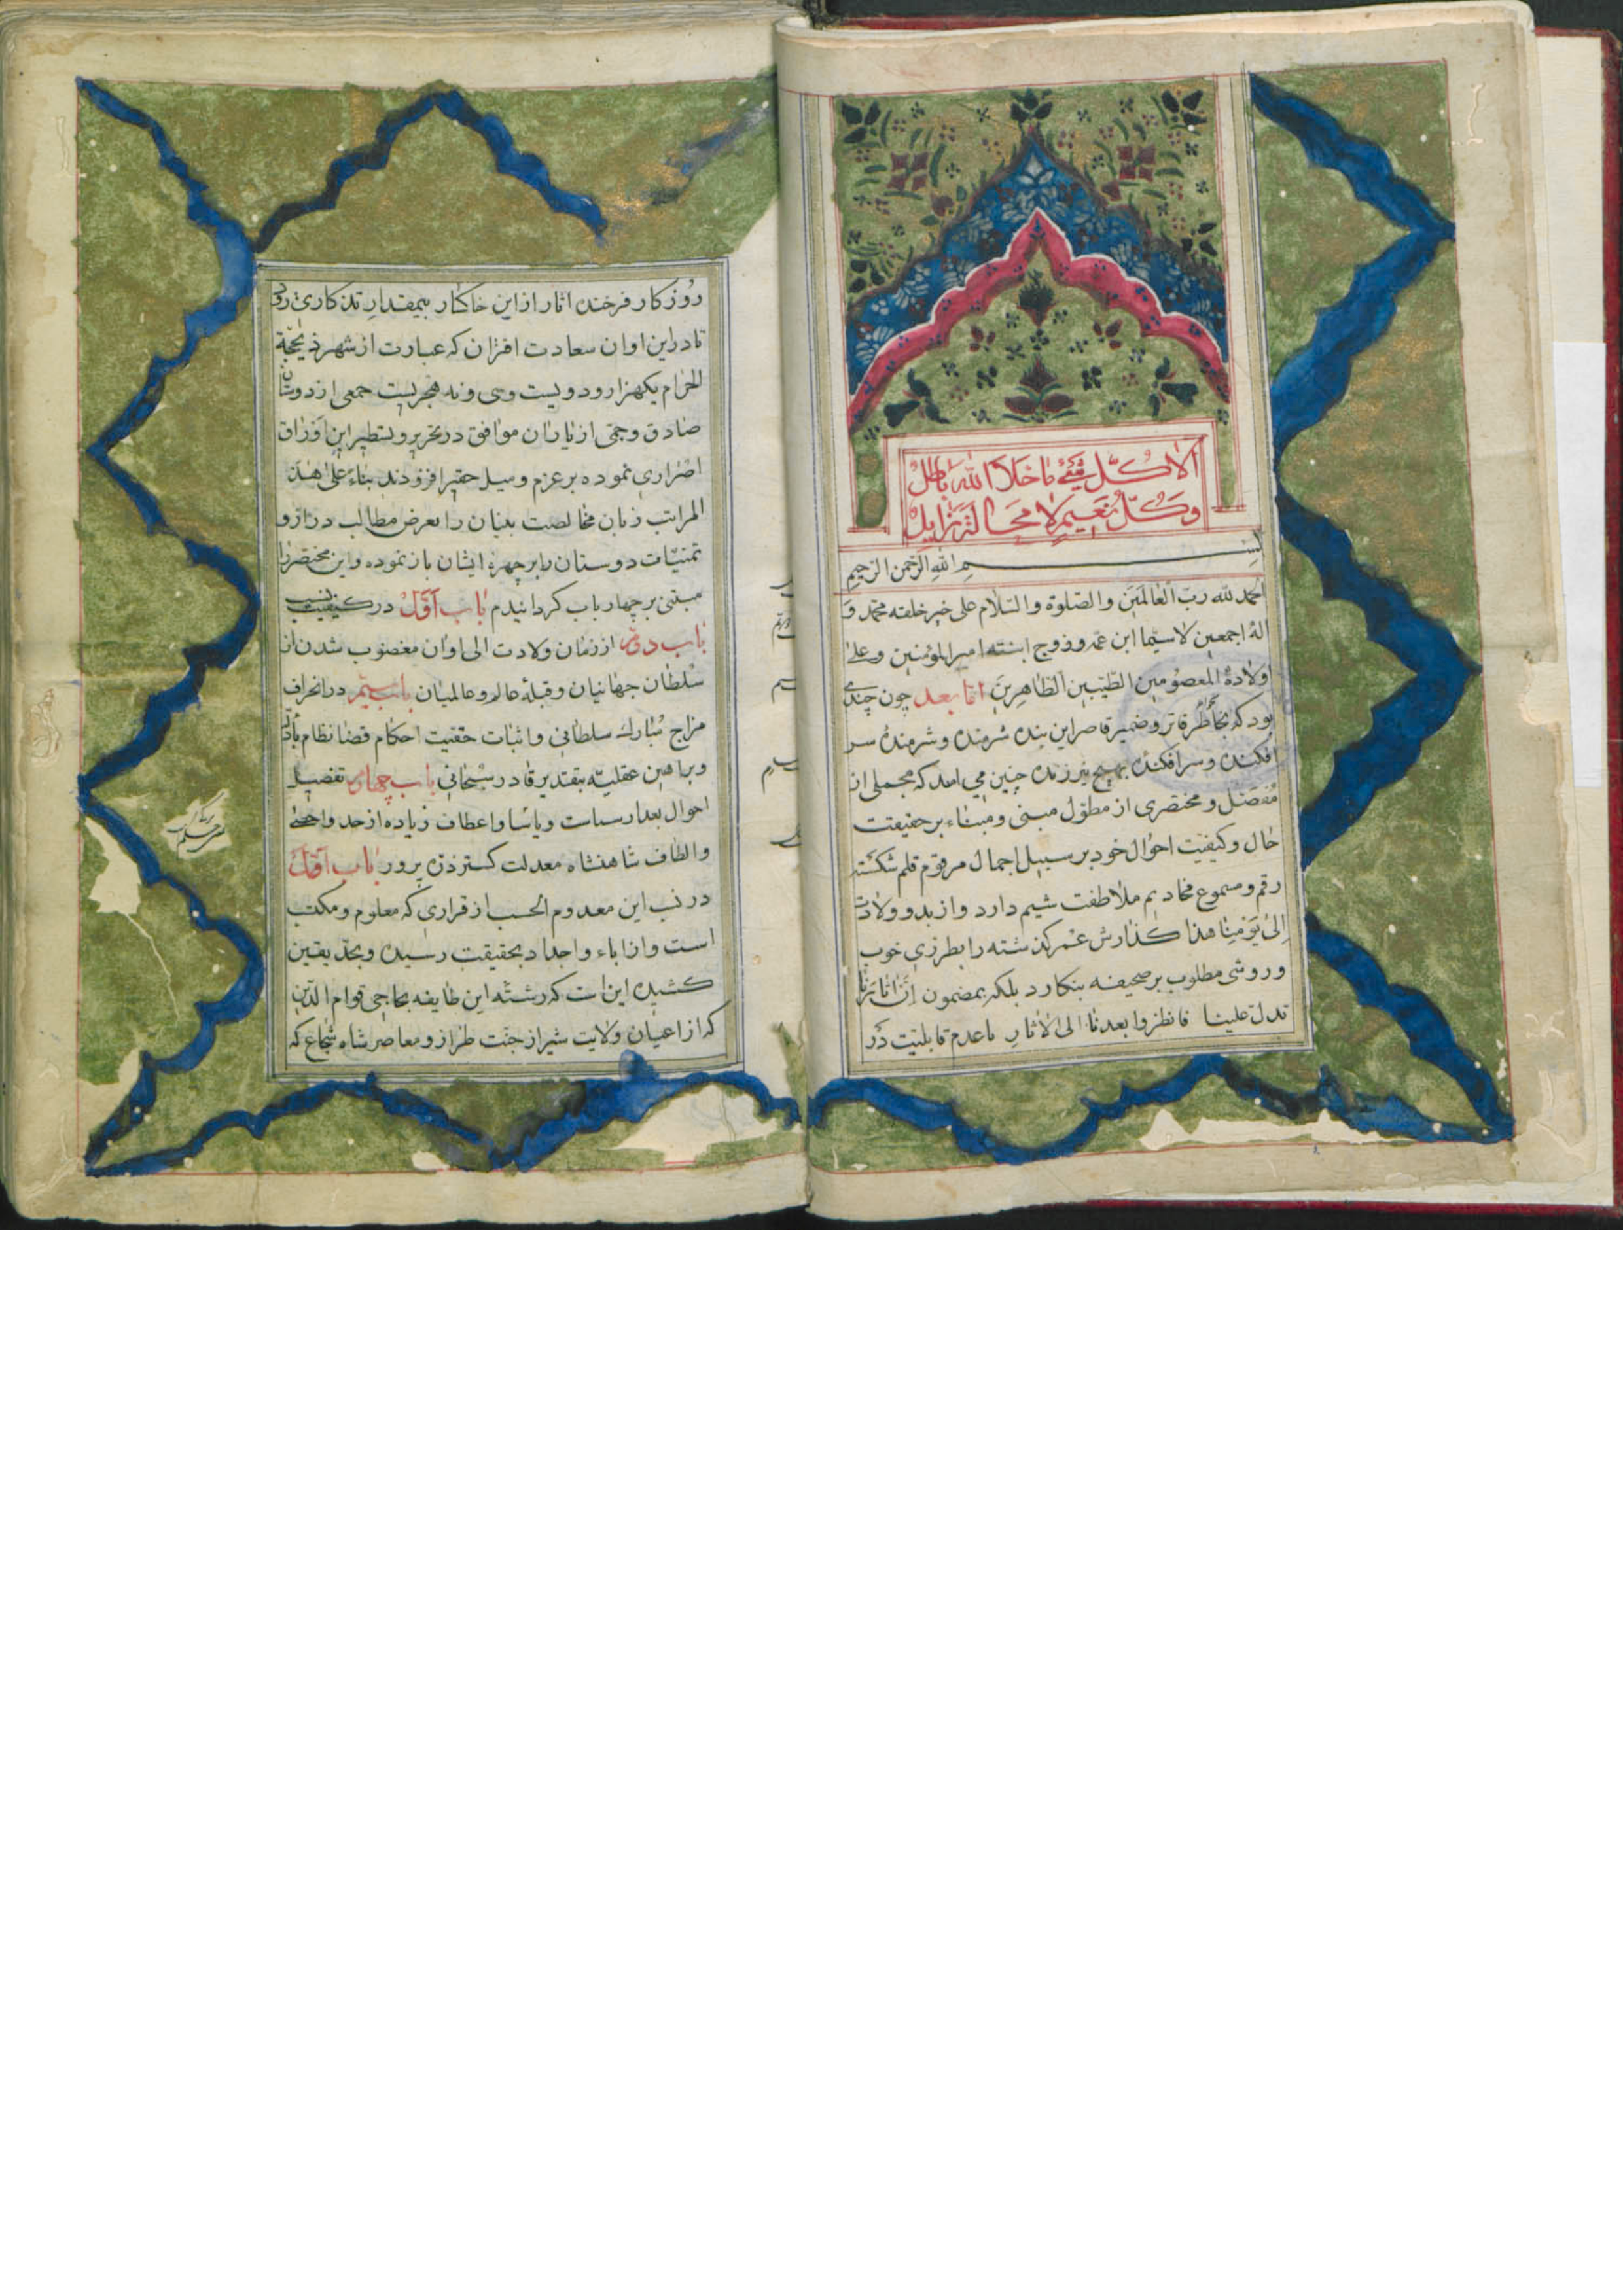 الا كلّ شيء ما خلا الله باطل
وكلّ نعيم لا محالة زايل
بسم الله الرّحمن الرّحيم
الحمد لله ربّ العالمين والصّلوة والسّلام على خير خلقه محمّد و
آله اجمعين لا سيّما ابن عمه وزوج ابنته امير المؤمنين وعلى
اولاده المعصومين الطّيّبين الطّاهرين امّا بعد چون چندى
بود كه بخاطر فاتر وضمير قاصر اين بنده شرمنده وشرمنده سر
افكنده وسرافكنده بهيچ نيرزنده چنين مي امد كه مجملى از
مفصّل و مختصرى از مطوّل مبنى ومبناء بر حقيقت
حال وكيفيّت احوال خود بر سبيل اجمال مرقوم قلم شكسته
رقم ومسموع مخاديم ملاطفت شيم دارد واز بدو ولادت
إلى يومنا هذا گذارش عمر گذشته را بطرزى خوب
وروشى مطلوب بر صحيفه بنگارد بلكه بمضمون إنّ اثارنا
تدلّ علينا فانظروا بعدنا الى الاثار با عدم قابليّت در
روزگار فرخنده اثار از اين خاكسار بيمقدار تذكارى رود
تا در اين اوان سعادت اقتران كه عبارت از شهر ذيحجّة
الحرام يكهزار و دويست وسى ونه هجريست جمعى از دوستان
صادق وجمعى از ياران موافق در تحرير وتسطير اين اوراق
اصرارى نموده بر عزم وميل حقير افزودند بناء على هذه
المراتب زبان مخالصت بنيان را بعرض مطالب دراز و
تمنيّات دوستان را بر چهرة ايشان باز نموده واين مختصر را
مبتنى بر چهار باب گردانيدم باب اوّل در كيفيت نسب
باب دوم از زمان ولادت الى اوان مغضوب شدن از
سلطان جهانيان وقبلة عالم وعالميان باب سيّم در انحراف
مزاج مبارك سلطاني واثبات حقيّت احكام قضا نظام بادلّه
وبراهين عقليّه بتقدير قادر سبحاني باب چهارم تفصيل
احوال بعد از سياست وياسا واعطاف زياده از حد واحصى
والطاف شاهنشاه معدلت گستر ذرّه پرور باب اوّل
در نسب اين معدوم الحسب از قرارى كه معلوم ومكتب
است واز اباء واجداد بحقيقت رسيده وبحدّ يقين
كشيده اين است كه رشتّه اين طايفه بحاجى قوام الدّين
كه از اعيان ولايت شيراز جنّت طراز ومعاصر شاه شجاع كه